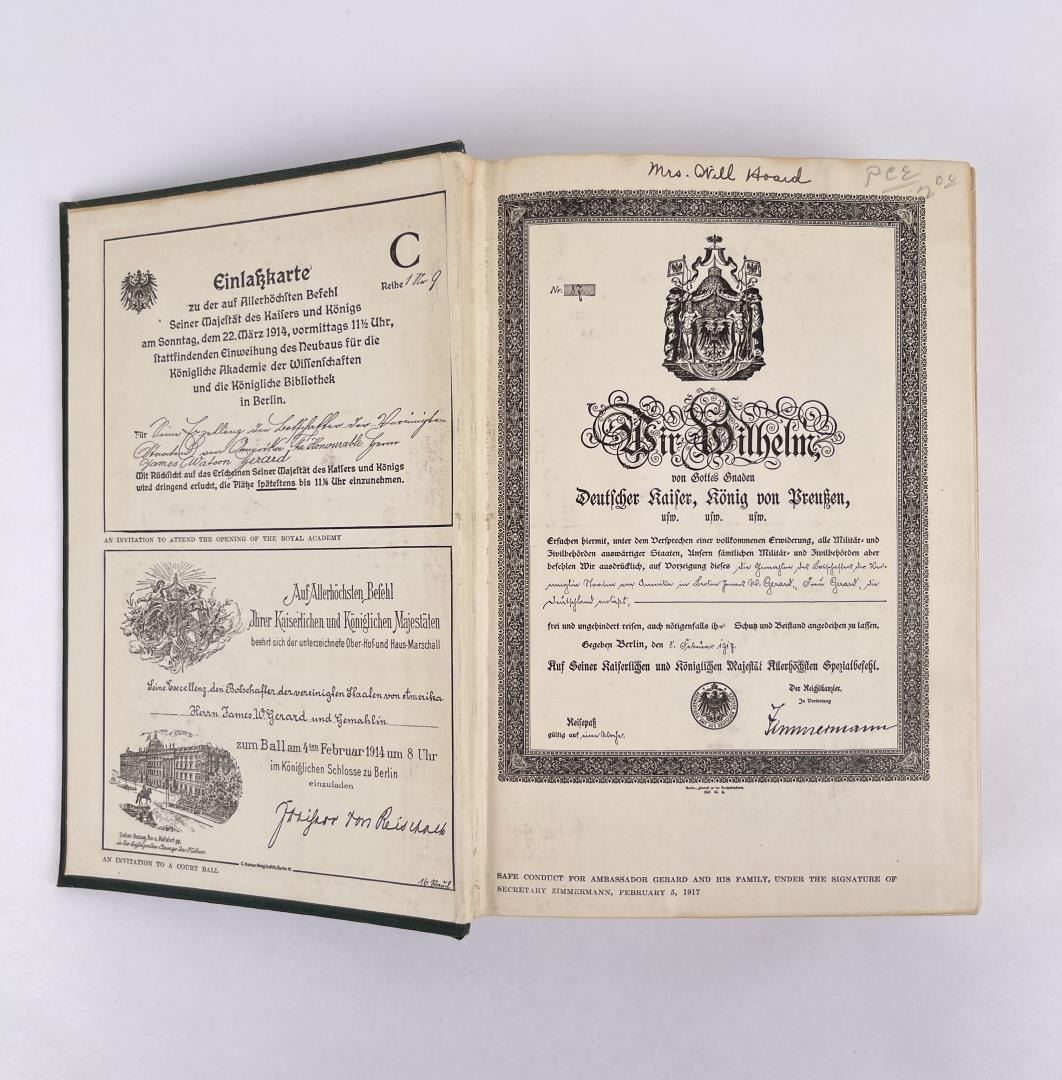 C
Reihe 1 Nr. 9
Einlaßkarte
zu der auf Allerhöchsten Befehl
Seiner Majestät des Kaisers und Königs
am Sonntag, dem 22. März 1914, vormittags 11½ Uhr,
stattfindenden Einweihung des Neubaus für die
Königliche Akademie der Wissenschaften
und die Königliche Bibliothek
in Berlin.
Für Seine Exzellenz den Botschafter der Vereinigten
Staaten von Amerika The Honourable Herrn
James Watson Gerard
Mit Rücksicht auf das Erscheinen Seiner Majestät des Kaisers und Königs
wird dringend ersucht, die Plätze spätestens bis 11¼ Uhr einzunehmen.
AN INVITATION TO ATTEND THE OPENING OF THE ROYAL ACADEMY
Auf Allerhöchsten Befehl
Ihrer Kaiserlichen und Königlichen Majestäten
beehrt sich der unterzeichnete Ober-Hof- und Haus-Marschall
Seine Excellenz, den Botschafter der vereinigten Staaten von Amerika
Herrn James W. Gerard und Gemahlin
zum Ball am 4ten Februar 1914 um 8 Uhr
im Königlichen Schlosse zu Berlin
einzuladen
Freiherr von Reischach
AN INVITATION TO A COURT BALL
Mrs. Will Hoard
PCE
Nr. 87
Wir Wilhelm,
von Gottes Gnaden
Deutscher Kaiser, König von Preußen,
usw. usw. usw.
Ersuchen hiermit, unter dem Versprechen einer vollkommenen Erwiderung, alle Militär- und
Zivilbehörden auswärtiger Staaten, Unsern sämtlichen Militär- und Zivilbehörden aber
befehlen Wir ausdrücklich, auf Vorzeigung dieses die Gemahlin des Botschafters der Ver-
einigten Staaten von Amerika in Berlin James W. Gerard, Frau Gerard, die
Deutschland verläßt,
frei und ungehindert reisen, auch nötigenfalls ihr Schutz und Beistand angedeihen zu lassen.
Gegeben Berlin, den 5. Februar 1917.
Auf Seiner Kaiserlichen und Königlichen Majestät Allerhöchsten Spezialbefehl.
Der Reichskanzler.
In Vertretung
Zimmermann
Reisepaß
gültig auf eine Woche.
SAFE CONDUCT FOR AMBASSADOR GERARD AND HIS FAMILY, UNDER THE SIGNATURE OF
SECRETARY ZIMMERMANN, FEBRUARY 5, 1917